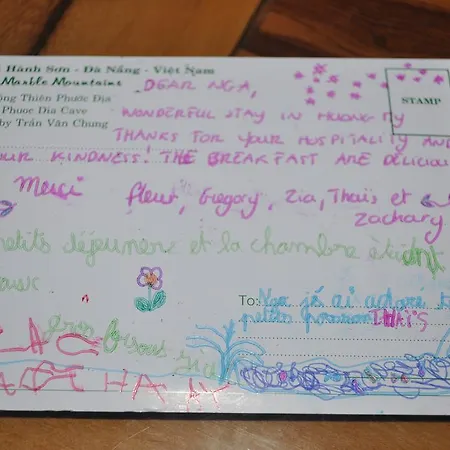 Hành Sơn - Đà Nẵng - Việt Nam
Marble Mountains
ộng Thiên Phước Địa
Phuoc Dia Cave
by Trần Văn Chung
STAMP
DEAR NGA,
WONDERFUL STAY IN HUONG TY
THANKS FOR YOUR HOSPITALITY AND
OUR KINDNESS! THE BREAKFAST ARE DELICIOU
Merci fleur, Gregory, Zia, Thaïs et
Zachary
petits déjeunerz et la chambre étédnt
To: Nga jé ai adoré t
petits
THAÏS
gros bisous zia
ZAC
ZACHARY